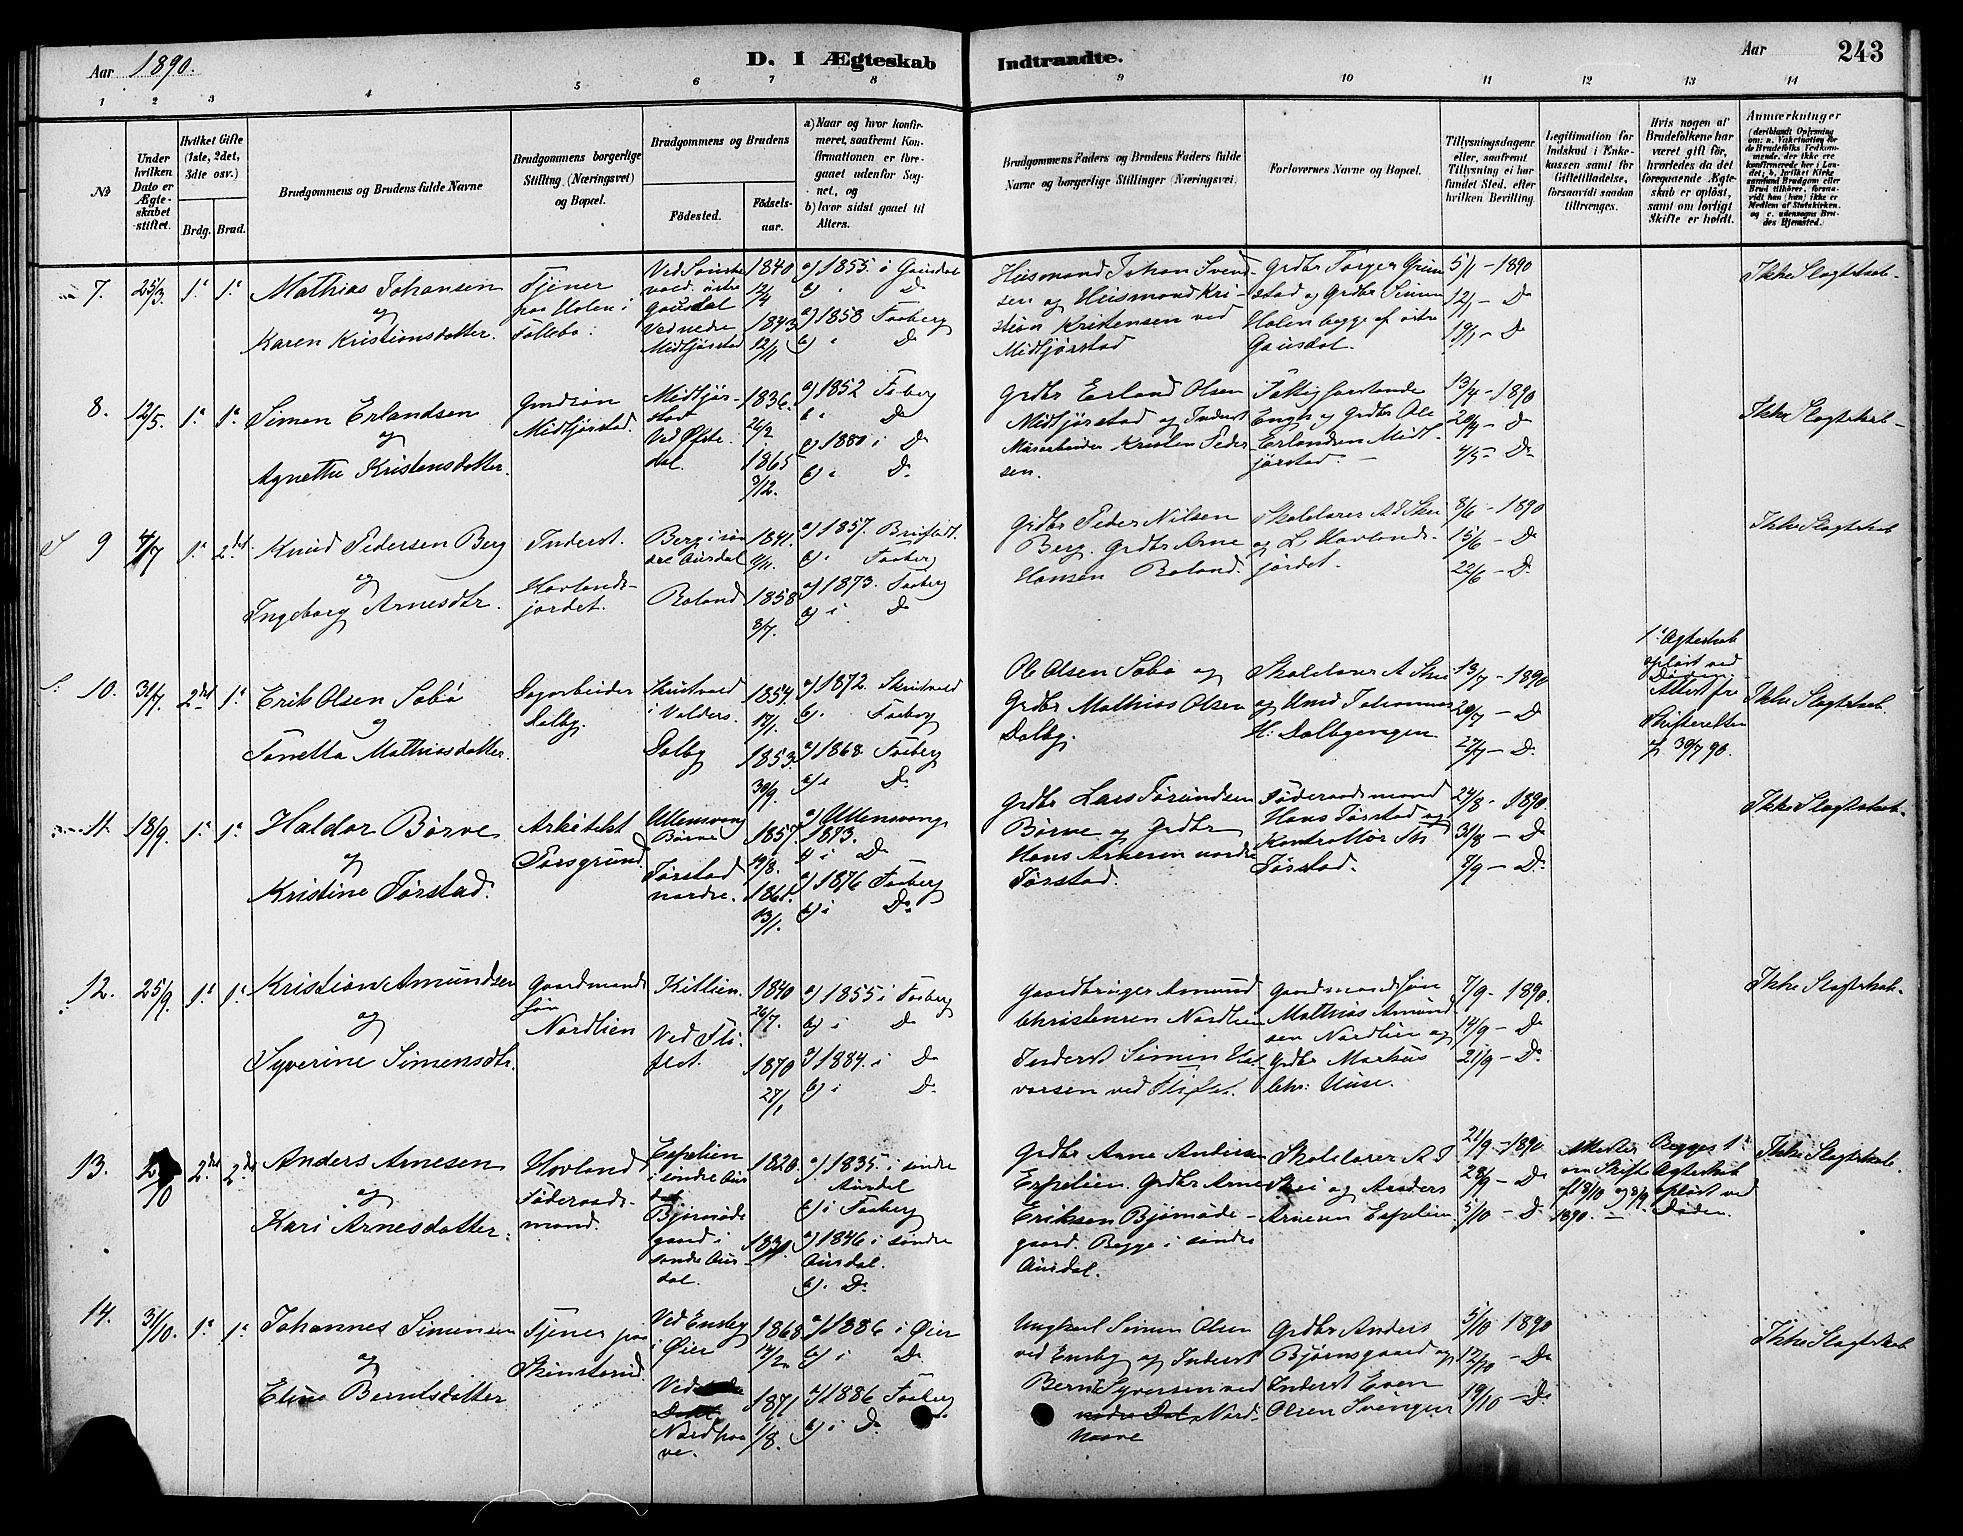 Aar 1890.
D. I Ægteskab Indtraadte.
Aar 243
1 2 3 4 5 6 7 8 9 10 11 12 13 14
No
Under hvilken Dato er Ægteskabet stiftet.
Hvilket Gifte (1ste, 2det, 3die osv.)
Brdg. Brud.
Brudgommens og Brudens fulde Navne
Brudgommens borgerlige Stilling (Næringsvei) og Bopæl.
Brudgommens og Brudens
Födested. Födsels-aar.
a) Naar og hvor konfirmeret, saafremt Konfirmationen er foregaaet udenfor Sognet, og
b) hvor sidst gaaet til Alters.
Brudgommens Faders og Brudens Faders fulde Navne og borgerlige Stillinger (Næringsvei)
Forlovernes Navne og Bopæl.
Tillysningsdagene eller, saafremt Tillysning ei har fundet Sted, efter hvilken Bevilling.
Legitimation for Indskud i Enkekassen samt for Giftetilladelse, forsaavidt saadan tiltrænges.
Hvis nogen af Brudefolkene har været gift för, hvorledes da det foregaaende Ægteskab er oplöst, samt om lovligt Skifte er holdt.
Anmærkninger
7. 25/3. 1ste 1ste
Mathias Johansen
og
Karen Kristiansdatter.
Tjener
paa Holen i
Follebo.
østre
Gausdal
Ved nedre
Midtjørstad
1840
12/4
1843
12/11
a) 1855 i Gausdal
b) " Do
a) 1858 Faaberg
b) " Do
Husmand Johan Svend-
sen og Husmand Kri-
stian Kristensen ved
Midtjørstad
Holen begge af østre
Gausdal.
5/1 - 1890
12/1 - Do
19/1 - Do
Ikke Slagtskab
8. 12/5. 1ste 1ste
Simen Erlandsen
og
Agnethe Kristensdatter.
Midtjørstad.
Midtjør-
stad
1836.
26/2
1865
3/12.
a) 1852 Faaberg
b) " Do
a) 1880 i Do
b) " Do
Grdbr Erland Olsen
Midtjørstad og Inderst
Kristen Peder
sen.
Fattigforstander
Enge og Grdbr Ole
Erlandsen Midt-
jørstad.
13/4 - 1890
20/4 - Do
4/5 - Do
Ikke Slagtskab -
9 4/7 1ste 2det
Knud Pedersen Berg
og
Ingeborg Arnesdtr.
Inderst.
Hovlands-
jordet.
Berg i søn
dre Aurdal
Roland
1841.
9/11.
1858
8/7.
a) 1857.
b) Faaberg
a) 1873. Faaberg
b) i Do
Grdbr Peder Nilsen
Berg. Grdbr Arne
Hansen Roland.
Skolelærer A P Skei
og L. Hovlands-
jordet.
8/6 - 1890
15/6 - Do
22/6 - Do
Ikke Slagtskab
10. 31/7. 2det 1ste
Erik Olsen Søbø
og
Tonetta Mathiasdatter.
Sagarbeider
Dalby.
i Valders.
Dalby
1854.
17/1.
1853.
30/9.
a) 1872.
b) Faaberg
a) 1868 Faaberg
b) i Do
Ole Olsen Søbø og
Grdbr Mathias Olsen
Dalby.
Skolelærer A Skei
H: Dalbyengen
13/7 - 1890
20/7 - Do
27/7 - Do
1ste Ægteskab
opløst ved
Døden.
Attest fra
Skifteretten
af 30/7 90.
Ikke Slagtskab.
11. 18/9. 1ste 1ste
Haldor Børve
og
Kristine Jørstad.
Arkitekt
Porsgrund.
Ullensvang
Børve
Jørstad
nordre.
1857.
19/8.
1861.
13/1.
a) Ullensvang
1873.
b) i Do
a) 1876 Faaberg
b) i Do
Grdbr Lars Jørundsen
Børve og Grdbr
Hans Arnesen nordre
Jørstad.
Føderaadsmand
Hans Jørstad og
Kontrollør
Jørstad.
24/8 - 1890.
31/8 - Do
7/9 - Do
Ikke Slagtskab.
12. 25/9. 1ste 1ste
Kristian Amundsen
og
Syverine Simensdtr.
Gaardmands
søn
Nordlien
Killien.
1840
26/7.
1870
27/1
a) 1855 i Faaberg
b) i Do
a) 1884. i Do
b) i Do
Gaardbruger Amund
Christensen Nordlien
Inderst Simen Hal-
vorsen
Gaardmandssøn
Mathias Amund
sen Nordlien og
Grdbr Markus
Chr: Huse.
7/9 - 1890.
14/9 - Do
21/9 - Do
Ikke Slagtskab.
13. 2det 2det
Anders Arnesen
og
Kari Arnesdatter.
Hovland
Føderaads-
mand.
Espelien
i søndre Aur
dal
Bjørnøde
gaard i
søndre Aur-
dal.
1820.
1831.
a) 1835 i søndre
Aurdal
b) i Faaberg
a) 1846 i søndre
Aurdal.
b) Do
Grdbr Arne Andersen
Espelien. Grdbr Arne
Eriksen Bjørnøde-
gaard. Begge i søndre
Aurdal.
Skolelærer A P
Skei og Anders
Arnesen Espelien
21/9 - 1890
28/9 - Do
5/10 - Do
Attester
om Skifte
af 3/10
1890.
Begges 1ste
Ægteskab
opløst ved
Døden.
Ikke Slagtskab.
14. 31/10. 1ste 1ste
Johannes Simensen
og
Elise Berntsdatter
Tjener paa
Ved Ensby
i Øier
Ved
Nordhaa
ve.
1868
14/2
1871
1/8.
a) 1886 i Øier
b) i Do
a) 1886 Faaberg
b) i Do
Ungkarl Simen Olsen
ved Ensby og Inderst
Bernt Syversen ved
nedre Dal Nord-
haave
Grdbr Anders
Bjørnsgaard og
Inderst Even
Olsen
5/10 1890
12/10 - Do
19/10 - Do
Ikke Slagtskab